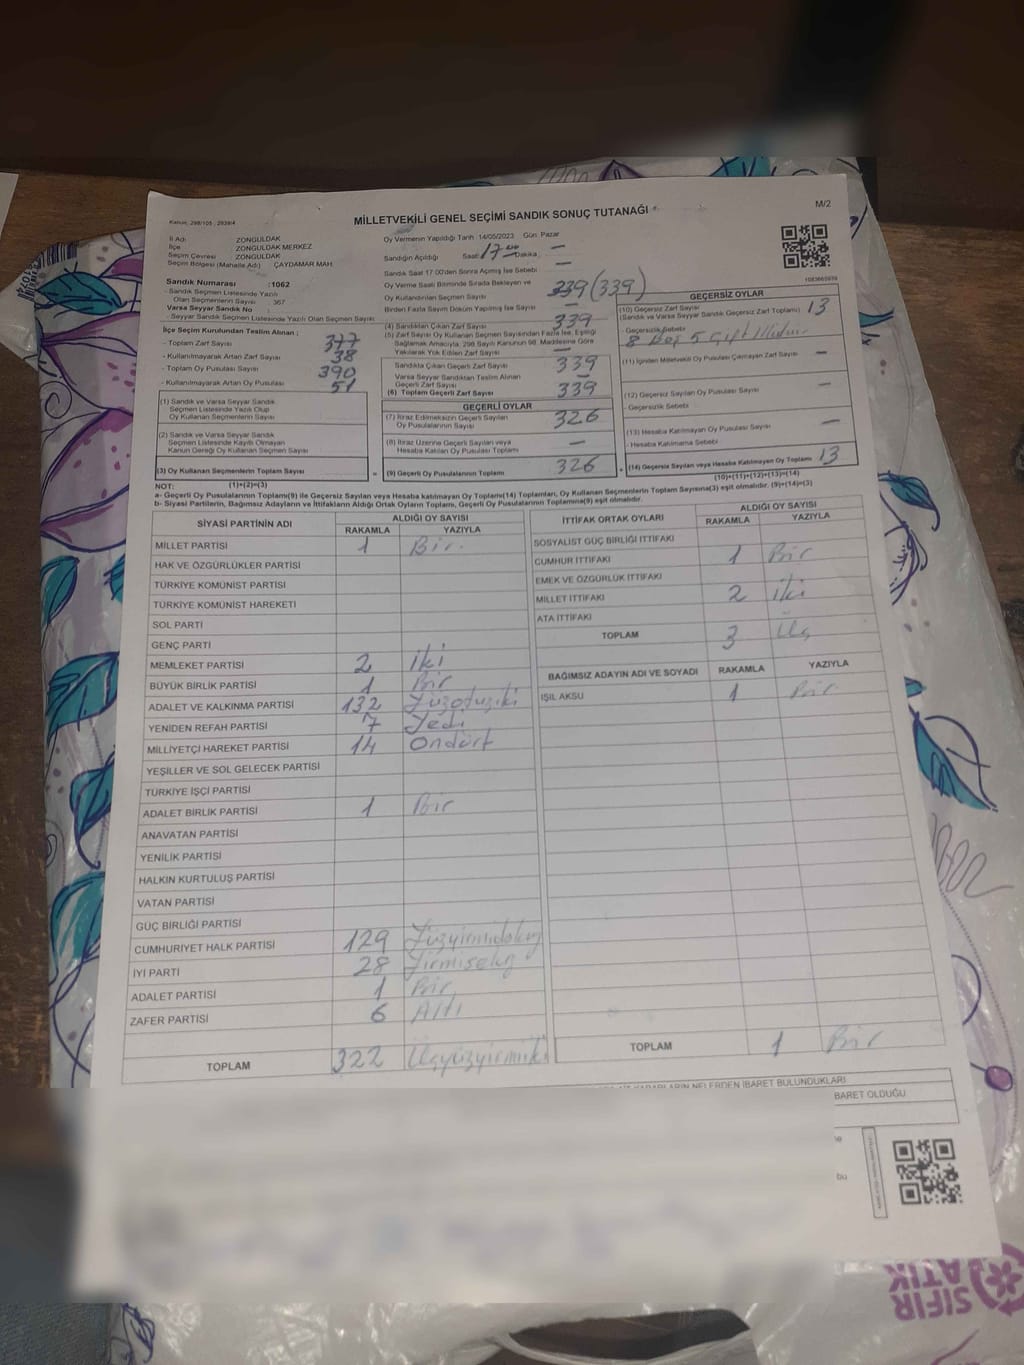 M/2
Kanun: 298/105 ; 2839/4
MİLLETVEKİLİ GENEL SEÇİMİ SANDIK SONUÇ TUTANAĞI
İl Adı ZONGULDAK
İlçe ZONGULDAK MERKEZ
Seçim Çevresi ZONGULDAK
Seçim Bölgesi (Mahalle Adı) ÇAYDAMAR MAH.
Sandık Numarası :1062
- Sandık Seçmen Listesinde Yazılı
Olan Seçmenlerin Sayısı : 367
Varsa Seyyar Sandık No
- Seyyar Sandık Seçmen Listesinde Yazılı Olan Seçmen Sayısı
İlçe Seçim Kurulundan Teslim Alınan ;
- Toplam Zarf Sayısı 377
- Kullanılmayarak Artan Zarf Sayısı 38
- Toplam Oy Pusulası Sayısı 390
- Kullanılmayarak Artan Oy Pusulası 51
(1) Sandık ve Varsa Seyyar Sandık
Seçmen Listesinde Yazılı Olup
Oy Kullanan Seçmenlerin Sayısı
(2) Sandık ve Varsa Seyyar Sandık
Seçmen Listesinde Kayıtlı Olmayan
Kanun Gereği Oy Kullanan Seçmen Sayısı
(3) Oy Kullanan Seçmenlerin Toplam Sayısı =
(1)+(2)=(3)
Oy Vermenin Yapıldığı Tarih :14/05/2023 Gün: Pazar
Sandığın Açıldığı Saat: 17 00 Dakika: —
Sandık Saat 17:00'den Sonra Açılmış İse Sebebi —
Oy Verme Saati Bitiminde Sırada Bekleyen ve
Oy Kullandırılan Seçmen Sayısı 339 (339)
Birden Fazla Sayım Döküm Yapılmış İse Sayısı
(4) Sandıktan Çıkan Zarf Sayısı 339
(5) Zarf Sayısı Oy Kullanan Seçmen Sayısından Fazla İse, Eşitliği
Sağlamak Amacıyla, 298 Sayılı Kanunun 98. Maddesine Göre
Yakılarak Yok Edilen Zarf Sayısı —
Sandıkta Çıkan Geçerli Zarf Sayısı 339
Varsa Seyyar Sandıktan Teslim Alınan
Geçerli Zarf Sayısı
(6) Toplam Geçerli Zarf Sayısı 339
GEÇERLİ OYLAR
(7) İtiraz Edilmeksizin Geçerli Sayılan
Oy Pusulalarının Sayısı 326
(8) İtiraz Üzerine Geçerli Sayılan veya
Hesaba Katılan Oy Pusulası Sayısı —
(9) Geçerli Oy Pusulalarının Toplamı 326 +
1083665939
GEÇERSİZ OYLAR
(10) Geçersiz Zarf Sayısı 13
(Sandık ve Varsa Seyyar Sandık Geçersiz Zarf Toplamı)
- Geçersizlik Sebebi 8 Boş 5 Çift Mühür
(11) İçinden Milletvekili Oy Pusulası Çıkmayan Zarf Sayısı —
(12) Geçersiz Sayılan Oy Pusulası Sayısı —
- Geçersizlik Sebebi
(13) Hesaba Katılmayan Oy Pusulası Sayısı —
- Hesaba Katılmama Sebebi
(14) Geçersiz Sayılan veya Hesaba Katılmayan Oy Toplamı 13
(10)+(11)+(12)+(13)=(14)
NOT:
a- Geçerli Oy Pusulalarının Toplamı(9) ile Geçersiz Sayılan veya Hesaba katılmayan Oy Toplamı(14) Toplamları, Oy Kullanan Seçmenlerin Toplam Sayısına(3) eşit olmalıdır. (9)+(14)=(3)
b- Siyasi Partilerin, Bağımsız Adayların ve İttifakların Aldığı Ortak Oyların Toplamı, Geçerli Oy Pusulalarının Toplamına(9) eşit olmalıdır.
SİYASİ PARTİNİN ADI ALDIĞI OY SAYISI
RAKAMLA YAZIYLA
MİLLET PARTİSİ 1 Bir
HAK VE ÖZGÜRLÜKLER PARTİSİ
TÜRKİYE KOMÜNİST PARTİSİ
TÜRKİYE KOMÜNİST HAREKETİ
SOL PARTİ
GENÇ PARTİ
MEMLEKET PARTİSİ 2 iki
BÜYÜK BİRLİK PARTİSİ 1 Bir
ADALET VE KALKINMA PARTİSİ 132 Yüzotuziki
YENİDEN REFAH PARTİSİ 7 Yedi
MİLLİYETÇİ HAREKET PARTİSİ 14 Ondört
YEŞİLLER VE SOL GELECEK PARTİSİ
TÜRKİYE İŞÇİ PARTİSİ
ADALET BİRLİK PARTİSİ 1 Bir
ANAVATAN PARTİSİ
YENİLİK PARTİSİ
HALKIN KURTULUŞ PARTİSİ
VATAN PARTİSİ
GÜÇ BİRLİĞİ PARTİSİ
CUMHURİYET HALK PARTİSİ 129 Yüzyirmidokuz
İYİ PARTİ 28 Yirmisekiz
ADALET PARTİSİ 1 Bir
ZAFER PARTİSİ 6 Altı
TOPLAM 322 Üçyüzyirmiiki
İTTİFAK ORTAK OYLARI ALDIĞI OY SAYISI
RAKAMLA YAZIYLA
SOSYALİST GÜÇ BİRLİĞİ İTTİFAKI
CUMHUR İTTİFAKI 1 Bir
EMEK VE ÖZGÜRLÜK İTTİFAKI
MİLLET İTTİFAKI 2 iki
ATA İTTİFAKI
TOPLAM 3 Üç
BAĞIMSIZ ADAYIN ADI VE SOYADI RAKAMLA YAZIYLA
IŞIL AKSU 1 Bir
TOPLAM 1 Bir
KARARLARIN NELERDEN İBARET BULUNDUKLARI
İBARET OLDUĞU
bu
SIFIR
ATIK